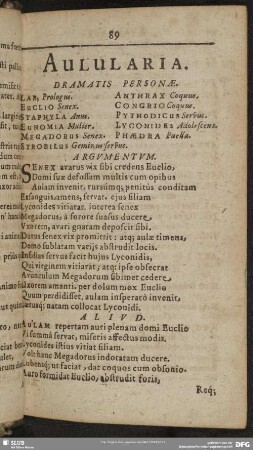 89
AULULARIA.
DRAMATIS PERSONÆ.
LAR, Prologus. ANTHRAX Coquus.
EUCLIO Senex. CONGRIO Coquus.
STAPHYLA Anus. PYTHODICUS Servus.
EUNOMIA Mulier. LYCONIDES Adolescens.
MEGADORUS Senex. PHÆDRA Puella.
STROBILUS Geminus servus.
ARGVMENTVM.
SENEX avarus vix sibi credens Euclio,
Domi suæ defossam multis cum opibus
Aulam invenit, rursumq; penitùs conditam
Exsanguis amens, servat. ejus filiam
Lyconides vitiarat. interea senex
Megadorus, à sorore suasus ducere
Vxorem, avari gnatam deposcit sibi.
Durus senex vix promittit: atq; aulæ timens,
Domo sublatam varijs abstrudit locis.
Insidias servus facit hujus Lyconidis,
Qui virginem vitiarat; atq; ipse obsecrat
Avunculum Megadorum sibimet cedere
Vxorem amanti. per dolum mox Euclio
Quum perdidisset, aulam insperatò invenit,
Lætusq; natam collocat Lyconidi.
ALIVD.
AULAM repertam auri plenam domi Euclio
Vi summâ servat, miseris affectus modis.
Lyconides istius vitiat filiam.
Volt hanc Megadorus indotatam ducere.
Lubensq; ut faciat, dat coquos cum obsonio.
Auro formidat Euclio, abstrudit foris,
Req;
SLUB
DFG